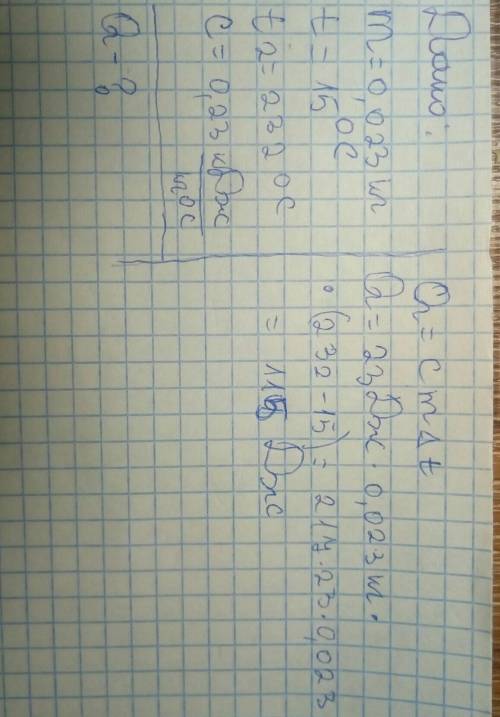 Дано:
m=0,023 кг
t = 15°C
t2=232°C
c=0,23 кДж
кг°C
Q-?
Q=cm∆t
Q=23Дж·0,023кг·
·(232-15)= 217·23·0,023
= 115 Дж